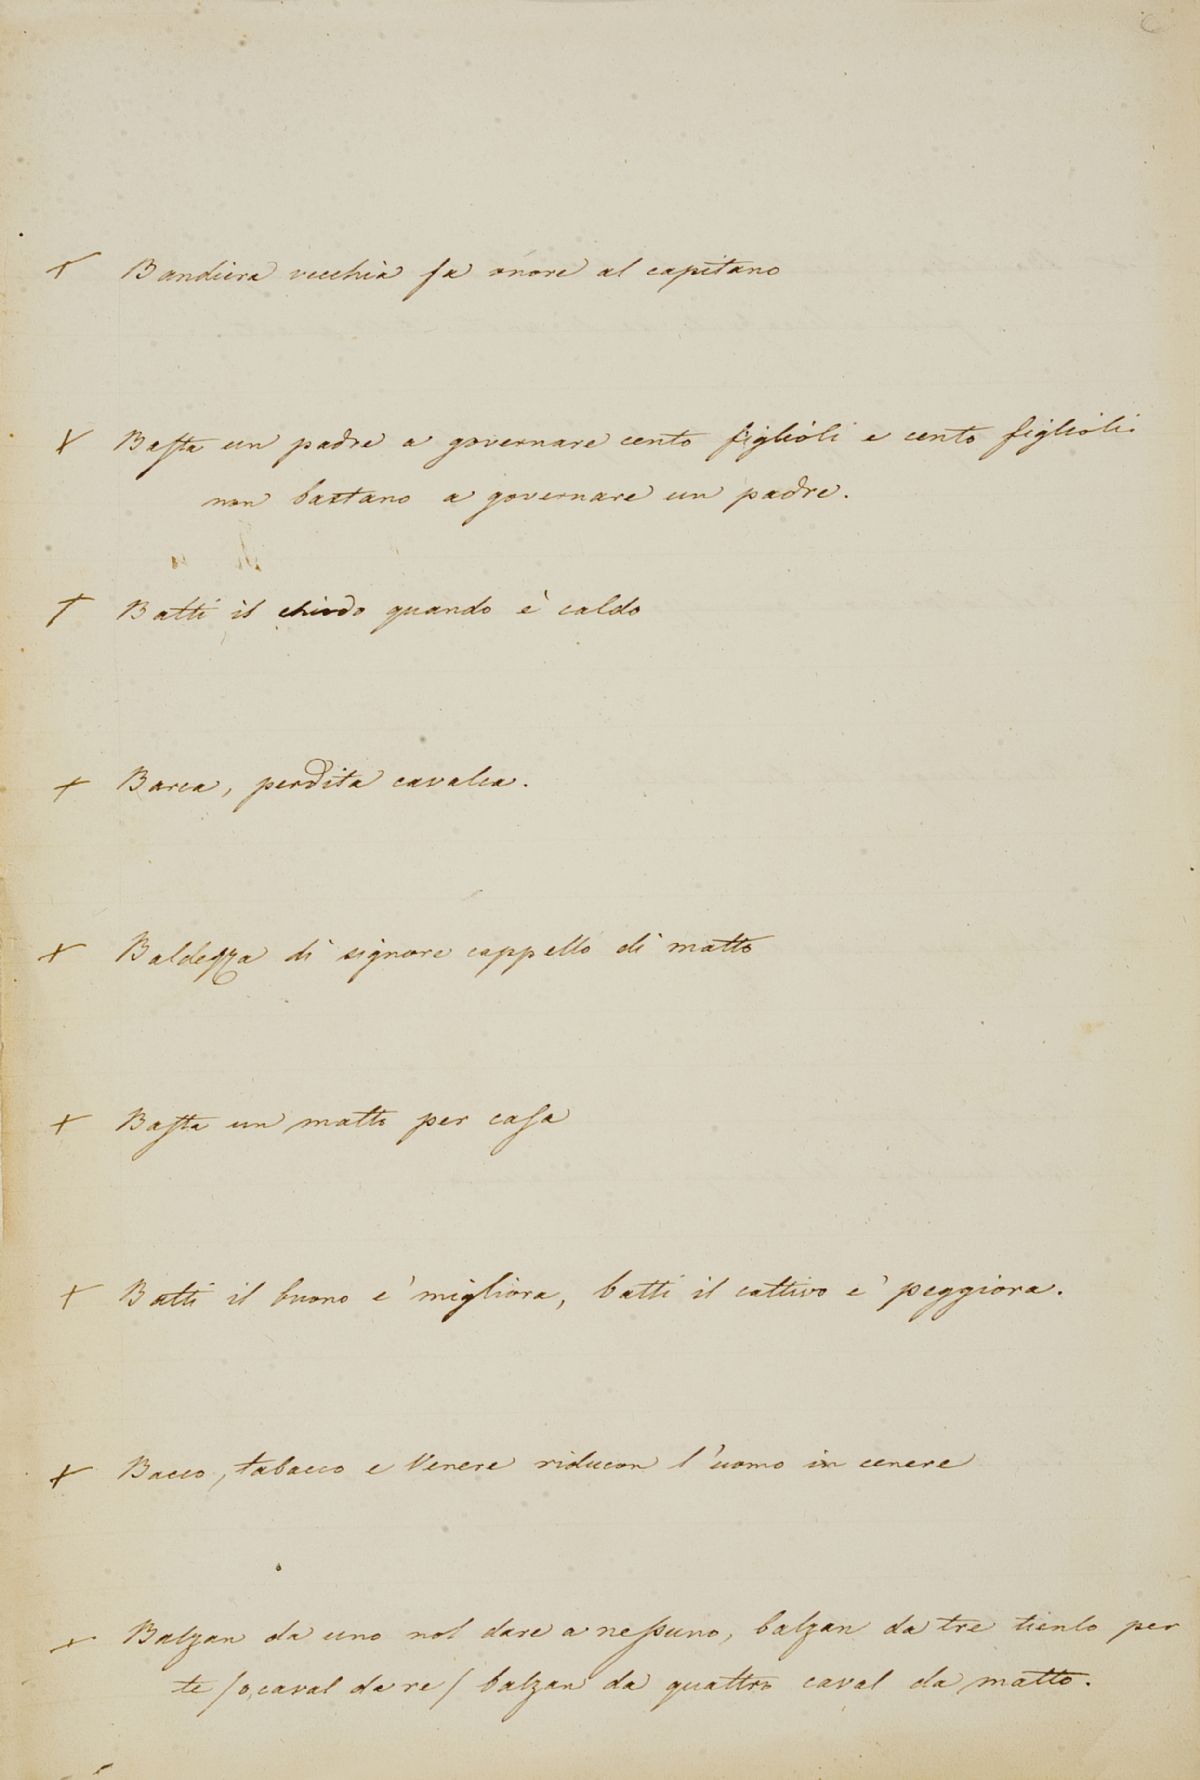 + Bandiera vecchia fa onore al capitano
+ Basta un padre a governare cento figlioli e cento figlioli
non bastano a governare un padre.
+ Batti il chiodo quando è caldo
+ Barca, perdita cavalca.
+ Baldezza di signore cappello di matto
+ Basta un matto per casa
+ Batti il buono e' migliora, batti il cattivo e' peggiora.
+ Bacco, tabacco e Venere riducon l'uomo in cenere
+ Balzan da uno nol dare a nessuno, balzan da tre tienlo per
te /o, caval da re/ balzan da quattro caval da matto.